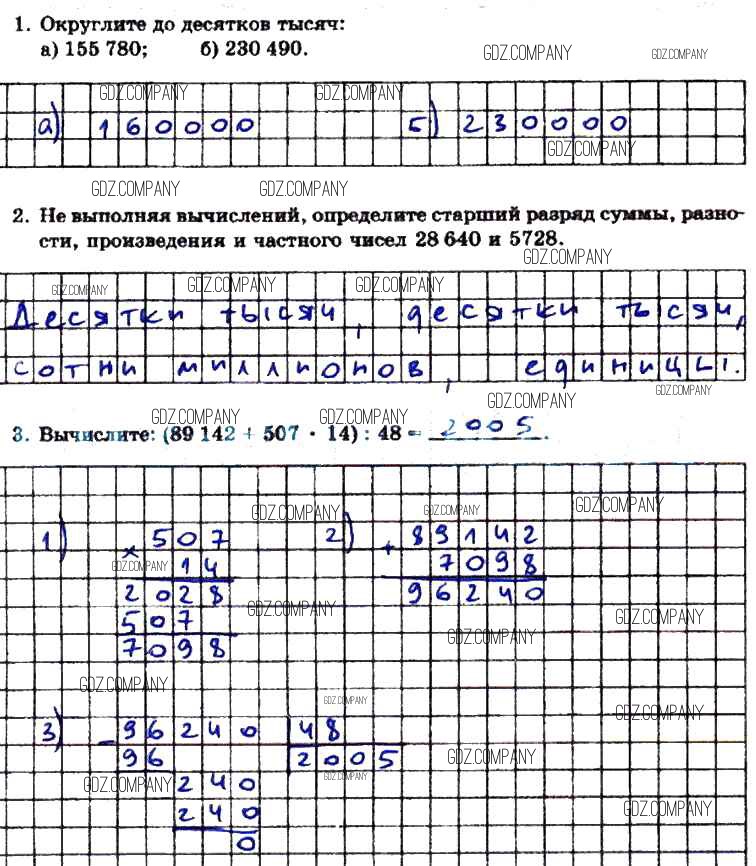 1. Округлите до десятков тысяч:
а) 155 780; б) 230 490.
GDZ.COMPANY GDZ.COMPANY
GDZ.COMPANY GDZ.COMPANY
а) 160000 б) 230000
GDZ.COMPANY
GDZ.COMPANY GDZ.COMPANY
2. Не выполняя вычислений, определите старший разряд суммы, разно-
сти, произведения и частного чисел 28 640 и 5728.
GDZ.COMPANY
GDZ.COMPANY GDZ.COMPANY GDZ.COMPANY
Десятки тысяч, десятки тысяч,
сотни миллионов, единицы.
GDZ.COMPANY
GDZ.COMPANY
GDZ.COMPANY GDZ.COMPANY
3. Вычислите: (89 142 + 507 · 14) : 48 = 2005.
GDZ.COMPANY GDZ.COMPANY GDZ.COMPANY
1) 507 2) + 89142
× 14 7098
GDZ.COMPANY
2028 96240
GDZ.COMPANY
507 GDZ.COMPANY
7098 GDZ.COMPANY
GDZ.COMPANY
GDZ.COMPANY
GDZ.COMPANY
3) - 96240 48
96 2005
GDZ.COMPANY
GDZ.COMPANY
GDZ.COMPANY 240
240 GDZ.COMPANY
0